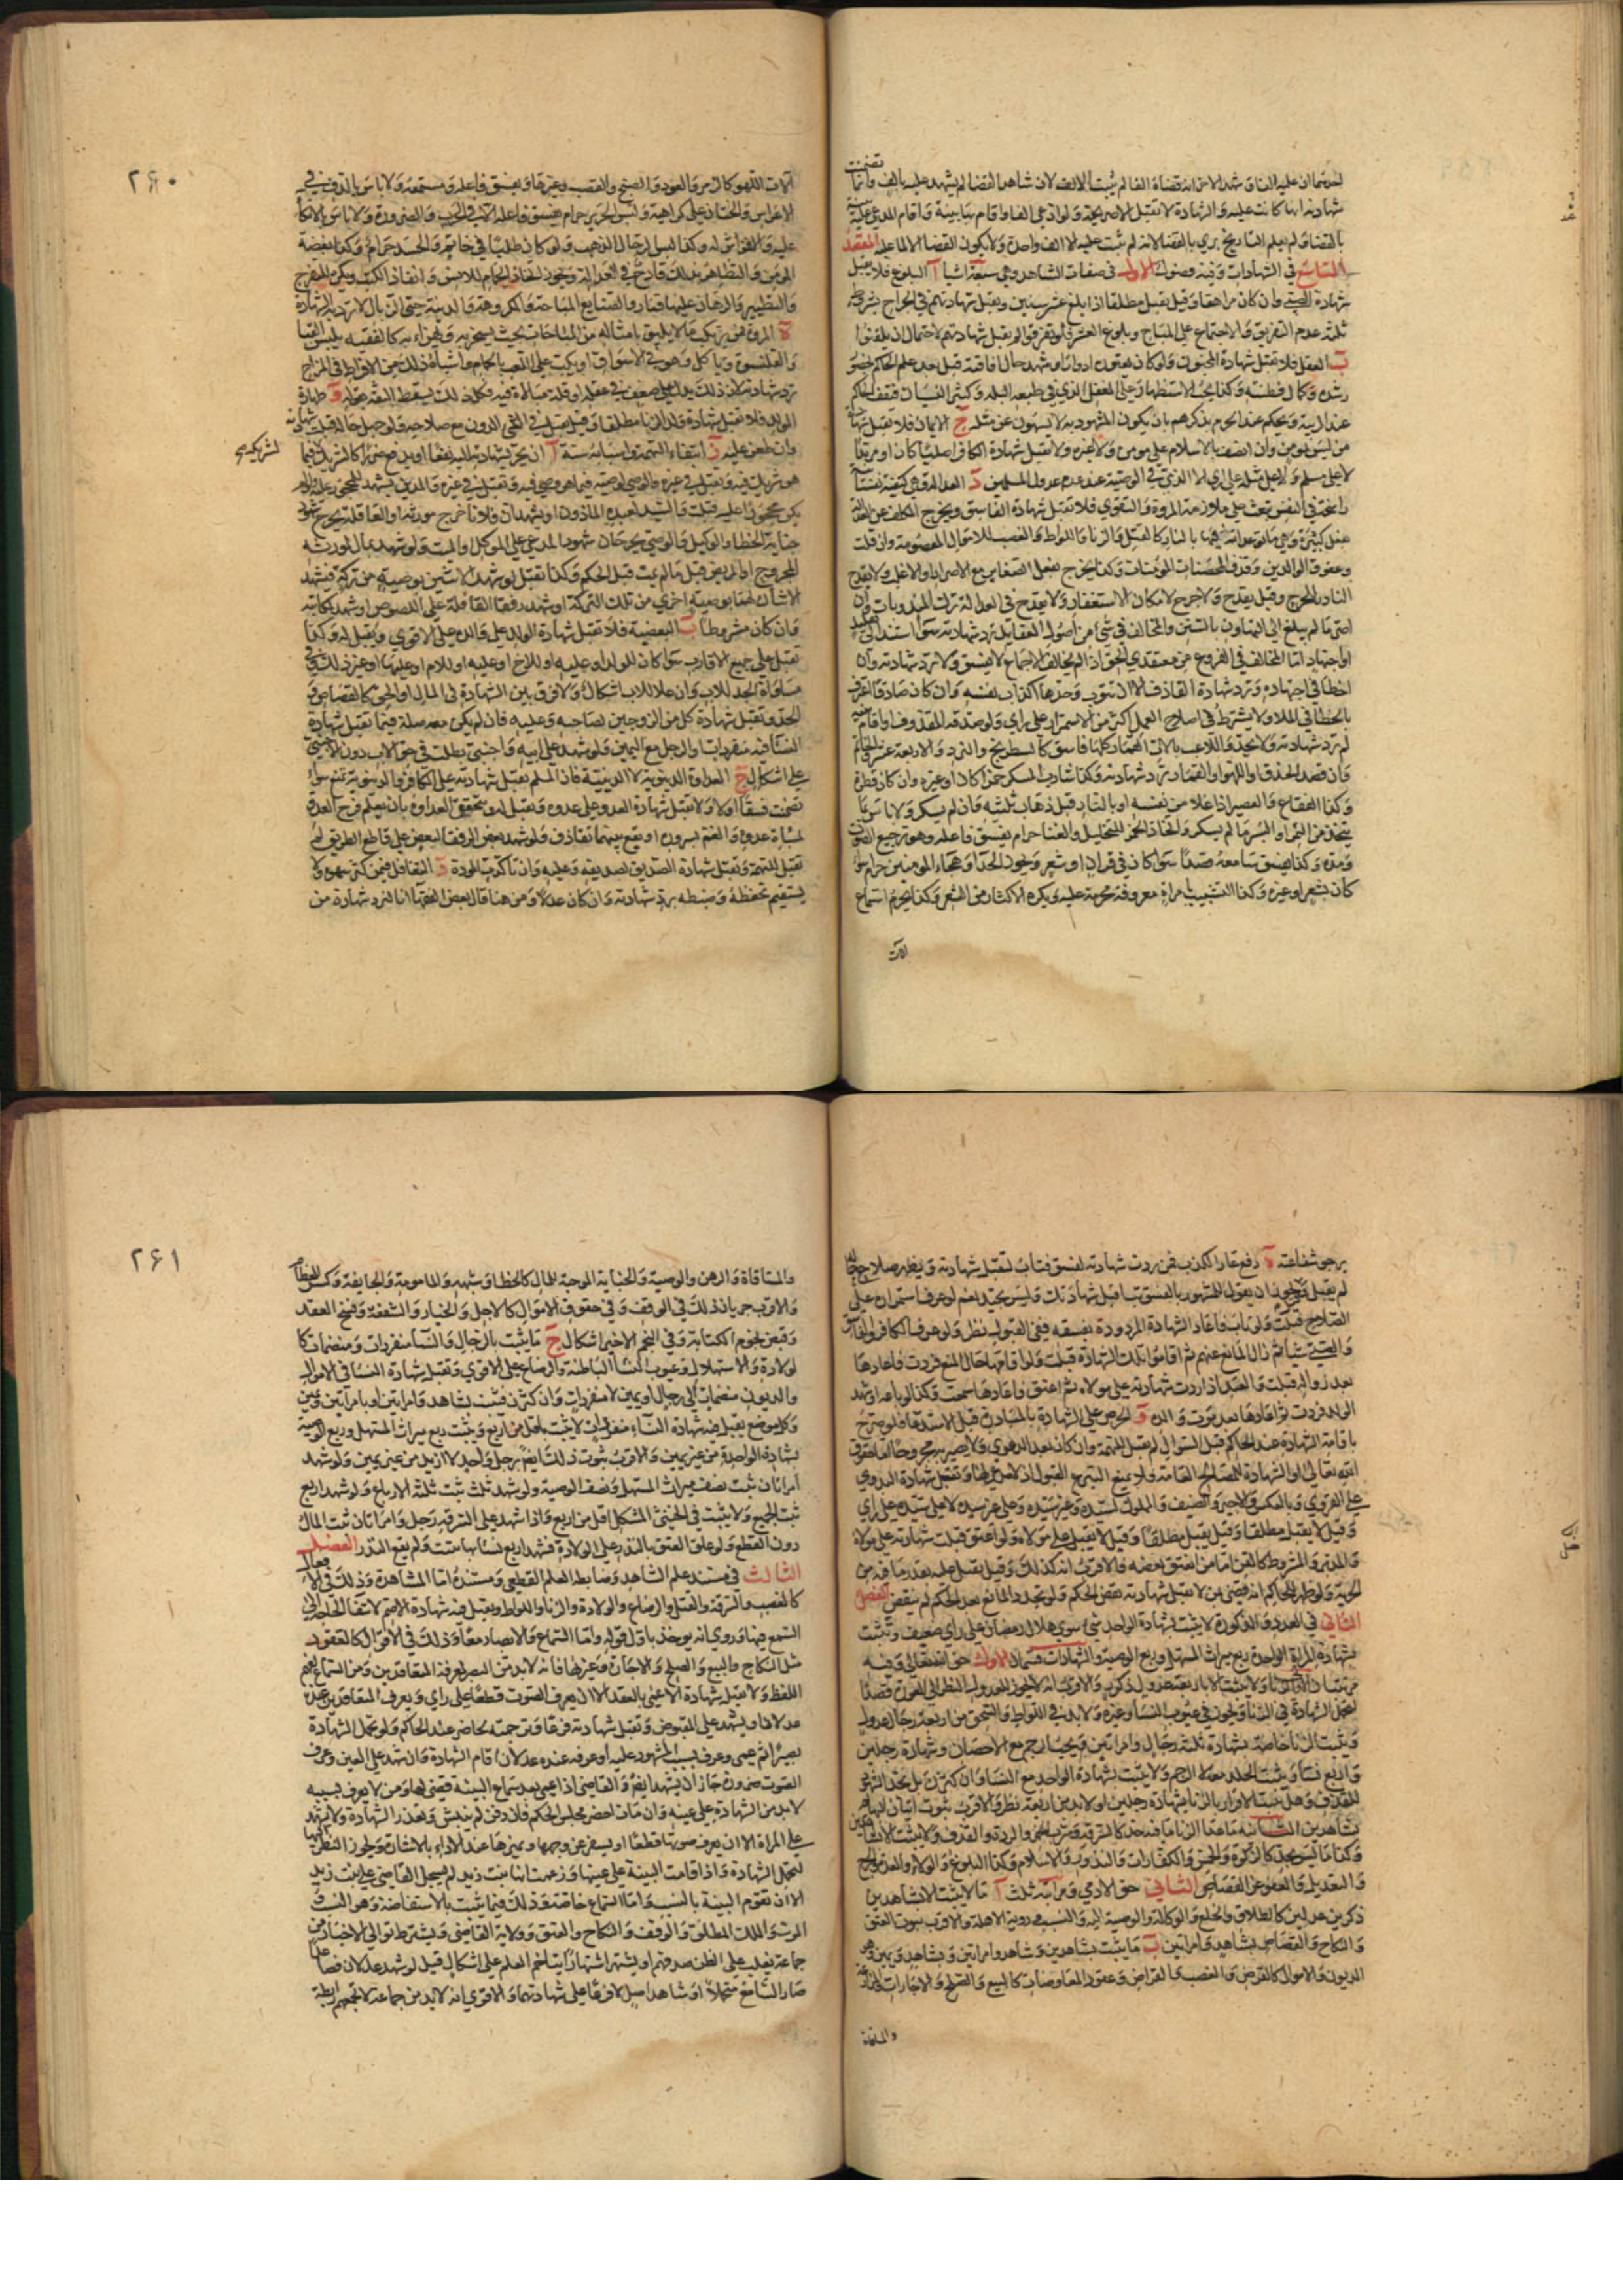 شهادة الصبي وان كان مراهقا وقيل يقبل مطلقا اذا بلغ عشر سنين ويقبل شهادتهم في الجراح بشروط
ثلثة عدم التفريق والاجتماع على المباح وبلوغ العشر فلو تفرقوا لم يقبل شهادتهم لاحتمال ان يلقنوا
ب العقل فلا تقبل شهادة المجنون ولو كان يعتوره ادوارا وشهد حال افاقته قبل بعد علم الحاكم بحضور
من ليس بمومن وان اتصف بالاسلام على مومن ولا غيره ولا تقبل شهادة الكافر اصليا كان او مرتدا
وعقوق الوالدين وقذف المحصنات المومنات وكذا يخرج بفعل الصغاير مع الاصرار او الاغلب ولا يقدح
النادر للحرج وقيل يقدح ولا حرج لامكان الاستغفار ولا يقدح في العدالة ترك المندوبات وان
او اجتهاد اما المخالف في الفروع من معتقدي الحق اذا لم يخالف الاجماع لا يفسق ولا ترد شهادته وان
اخطا في اجتهاده وترد شهادة القاذف الا ان يتوب وحدها اكذاب نفسه وان كان صادقا اعترف
بالخطا في الملا ولا يشترط في اصلاح العمل اكثر من الاستمرار على راي ولو صدقه المقذوف او اقام بينة
لم ترد شهادته ولا يحد واللاعب بالات القمار كلها فاسق كالشطرنج والنرد والاربعة عشر والخاتم
وان قصد الحذق او اللهو او القمار ترد شهادته وكذا شارب المسكر خمرا كان او غيره وان كان قطرة
وكذا الفقاع والعصير اذا غلا من نفسه او بالنار قبل ذهاب ثلثيه وان لم يسكر ولا باس بما
يتخذ من التمر او البسر ما لم يسكر واتخاذ الخمر للتخليل والغنا حرام يفسق فاعله وهو ترجيع الصوت
ومده وكذا يفسق سامعه قصدا سوا كان في قران او شعر ويجوز الحدا وهجاء المومنين حرام سوا
كان بشعر او غيره وكذا التشبيب بامراة معروفة محرمة عليه ويكره الاكثار من الشعر وكذا يحرم استماع
الات
۲۶۰
آلات اللهو كالزمر والعود والصنج والقصب وغيرها ويفسق فاعله ومستمعه ولا باس بالدف في
الاعراس والختان على كراهية ولبس الحرير حرام يفسق فاعله الا في الحرب والضرورة ولا باس بالاتكا
عليه والافتراش له وكذا لبس الرجال الذهب ولو كان طليا في خاتم والحسد حرام وكذا بغضة
المومن والتظاهر بذلك قادح في العدالة ويجوز اتخاذ الحمام للانس وانفاذ الكتب ويكره للتفرج
والتطيير والرهان عليها قمار والصنايع المباحة والمكروهة والدنية حتى الزبال لا ترد بها الشهادة
ه المروة فمن يرتكب ما لا يليق بامثاله من المباحات بحيث يسخر به ويهزا به كالفقيه يلبس القبا
والقلنسوة وياكل وهو في الاسواق او يكب على اللعب بالحمام واشباه ذلك من الافراط في المزاح
ترد شهادته لان ذلك يدل على ضعف في عقله او قلة مبالاة فيه وكل ذلك يسقط الثقة بقوله و طهارة
المولد فلا تقبل شهادة ولد الزنا مطلقا وقيل يقبل في الشي الدون مع صلاحه ولو جهل حاله قبلت شهادته
وان طعن عليه ز انتفاء التهمة ولها اسباب ستة آ ان يجر بشهادته اليه نفعا او يدفع ضررا كالشريك فيما
لشريكه صح
هو شريك فيه وتقبل في غيره والوصي لوصيه فيما هو وصي فيه وتقبل في غيره والمدين يشهد للمحجور عليه ولو لم
يكن محجورا عليه قبلت والسيد لعبده الماذون او يشهد ان فلانا جرح مورثه او العاقلة بجرح شهود
جناية الخطا والوكيل والوصي يجرحان شهود المدعي على الموكل والميت ولو شهد بمال لمورثه
المجروح او المريض قبل ما لم يمت قبل الحكم وكذا تقبل لو شهد لاثنين بوصية من تركة فشهد
الاثنان لهما بوصية اخرى من تلك التركة او شهد رفقا القافلة على اللصوص او شهد بمكاتبه
وان كان مشروطا ب البعضية فلا تقبل شهادة الولد على والده على الاقوى ويقبل له وكذا
تقبل على جميع الاقارب سوا كان للولد او عليه او للاخ او عليه او للام او عليها او غير ذلك وفي
مساواة الجد للاب وان علا للاب اشكال ولا فرق بين الشهادة في المال او الحق كالقصاص و
الحد وتقبل شهادة كل من الزوجين لصاحبه وعليه فان لم يكن معه مسلة فيما تقبل شهادة
النسا فيه منفردات او الرجل مع اليمين ولو شهد على ابيه واجنبي بطلت في حق الاب دون الاجنبي
على اشكال ج العداوة الدنيوية لا الدينية فان المسلم يقبل شهادته على الكافر والدنيوية تمنع سوا
تضمنت فسقا او لا ولا تقبل شهادة العدو على عدوه وتقبل له وتتحقق العداوة بان يعلم فرح العدو
بمساءة عدوه والغم بسروره او يقع بينهما تقاذف ولو شهد بعض الرفقا لبعض على قاطع الطريق لم
تقبل للتهمة وتقبل شهادة الصديق لصديقه وعليه وان تاكدت المودة د التغافل فمن كثر سهوه ولا
يستقيم تحفظه وضبطه ترد شهادته وان كان عدلا ومن هنا قال بعض الفقها انا لنرد شهادة من
يرجو شفاعته ه دفع عار الكذب فمن ردت شهادته لفسق فتاب لتقبل شهادته ويظهر صلاح حاله
الصلاح قبلت ولو تاب فاعاد الشهادة المردودة بفسقه ففي القبول نظر ولو عرف الكافر والفاسق
والصبي شيا ثم زال المانع عنهم ثم اقاموا تلك الشهادة قبلت ولو اقامها حال المنع فردت فاعادها
بعد زواله قبلت والعبد اذا ردت شهادته على مولاه ثم اعتق فاعادها سمعت وكذا لو باعه او شهد
الولد فردت ثم اعادها بعد موت والده و الحرص على الشهادة بالمبادرة قبل الاستدعا فلو صرح
باقامة الشهادة عند الحاكم قبل السوال لم تقبل للتهمة وان كان بعد الدعوى ولا يصير به مجروحا اما حقوق
الله تعالى او الشهادة للمصالح العامة فلا يمنع التبرع القبول اذ لا مدعي لها وتقبل شهادة البدوي
على القروي وبالعكس والاجير والضيف والمملوك لسيده وغير سيده وعلى غير سيده لا على سيده على راي
وقيل لا يقبل مطلقا وقيل يقبل مطلقا وقيل لا يقبل على مولاه ولو اعتق قبلت شهادته على مولاه
والمدبر والمشروط كالقن اما من انعتق بعضه فالاقرب انه كذلك وقيل يقبل عليه بقدر ما فيه من
الحرية ولو ظهر للحاكم انه قضى بمن لا تقبل شهادته نقض الحكم ولو تجدد المانع بعد الحكم لم ينقض الفصل
الثاني في العدد والذكورة لا يثبت بشهادة الواحد شي سوى هلال رمضان على راي ضعيف وتثبت
بشهادة المراة الواحدة ربع ميراث المستهل وربع الوصية والشهادات قسمان الاول حق الله تعالى وفيه
لتحمل الشهادة في الزنا ويجوز في عيوب النسا وغيره ولا بد في اللواط والسحق من اربعة رجال عدول
ويثبت الزنا خاصة بشهادة ثلثة رجال وامراتين فيجب الرجم مع الاحصان وبشهادة رجلين
واربع نسا ويثبت الجلد معه لا الرجم ولا يثبت بشهادة الواحد مع النسا وان كثرن بل يحد الشهود
للقذف وهل يثبت الاقرار بالزنا بشهادة رجلين او لا بد من اربعة نظر والاقرب ثبوت اتيان البهايم
بشاهدين الثانية ما عدا الزنا مما فيه حد كالسرقة وشرب الخمر والردة والقذف ولا يثبت الا بشاهدين
وكذا ما ليس بحد كالزكوة والخمس والكفارات والنذور والاسلام وكذا البلوغ والولاء والعدة والجرح
والتعديل والعفو عن القصاص الثاني حق الادمي ومراتبه ثلث آ ما لا يثبت الا بشاهدين
ذكرين عدلين كالطلاق والخلع والوكالة والوصية اليه والنسب وروية الاهلة والاقرب ثبوت العتق
والنكاح والقصاص بشاهد وامراتين ب ما يثبت بشاهدين وشاهد وامراتين وبشاهد ويمين وهو
الديون والاموال كالقرض والغصب والقراض وعقود المعاوضات كالبيع والصلح والاجارات والمزارعة
والمساقاة
۲۶۱
والمساقاة والرهن والوصية والجناية الموجبة للمال كالخطا وشبهه والمامومة والجايفة وكسر العظام
والاقرب جريان ذلك في الوقف وفي حقوق الاموال كالاجل والخيار والشفعة وفسخ العقد
وقبض نجوم الكتابة وفي النجم الاخير اشكال ج ما يثبت بالرجال والنسا منفردات ومنضمات كا
لولادة والاستهلال وعيوب النسا الباطنة والرضاع على الاقوى وتقبل شهادة النسا في الاموال
والديون منضمات الى رجال او يمين لا منفردات وان كثرن فتثبت بشاهد وامراتين او بامراتين ويمين
وكل موضع يقبل فيه شهادة النساء منفردات لا يثبت باقل من اربع ويثبت ربع ميراث المستهل وربع الوصية
بشهادة الواحدة من غير يمين والاقرب ثبوت ذلك ايضا برجل واحد لا ازيد من غير يمين ولو شهد
امراتان ثبت نصف ميراث المستهل ونصف الوصية ولو شهد ثلث ثبت ثلثة الارباع ولو شهد اربع
ثبت الجميع ولا يثبت في الخنثى المشكل اقل من اربع واذا شهد على السرقة رجل وامراتان ثبت المال
دون القطع ولو علق العتق بالنذر على الولادة فشهد اربع نسا بها ثبتت ولم يقع النذر الفصل
الثالث في مستند علم الشاهد وضابطه العلم القطعي ومستنده اما المشاهدة وذلك في الافعال
كالغصب والسرقة والقتل والرضاع والولادة والزنا واللواط ويقبل فيه شهادة الاصم لانتفا الحاجة الى
السمع فيها وروي انه يوخذ باول قوله واما السماع والابصار معا وذلك في الاقوال كالعقود
مثل النكاح والبيع والصلح والاجارة وغيرها فانه لا بد من البصر لمعرفة المتعاقدين ومن السماع لفهم
اللفظ ولا تقبل شهادة الاعمى بالعقد الا ان يعرف الصوت قطعا على راي ويعرف المتعاقدين عنده
عدلان او يشهد على المقبوض وتقبل شهادته فرعا وترجمته لحاضر عند الحاكم ولو تحمل الشهادة
بصيرا ثم عمي وعرف نسب المشهود عليه او عرفه عنده عدلان اقام الشهادة وان شهد على العين وعرف
الصوت ضرورة جاز ان يشهد ايضا والقاضي اذا عمي بعد سماع البينة قضى بها ومن لا يعرف نسبه
لا بد من الشهادة على عينه وان مات احضر مجلس الحكم فان دفن لم ينبش وتعذر الشهادة ولا يشهد
على المراة الا ان يعرف صوتها قطعا او يسفر عن وجهها ويميزها عند الاداء بالاشارة ويجوز النظر اليها
لتحمل الشهادة واذا قامت البينة على عينها وزعمت انها بنت زيد لم يسجل القاضي على بنت زيد
الا ان تقوم البينة بالنسب واما السماع خاصة وذلك فيما يثبت بالاستفاضة وهو النسب و
الموت والملك المطلق والوقف والنكاح والعتق وولاية القاضي ويشترط توالي الاخبار من
جماعة يغلب على الظن صدقهم او يشتهر اشتهارا يتاخم العلم على اشكال قيل لو شهد عدلان فصاعدا
صار السامع متحملا او شاهد اصل لا فرعا على شهادتهما والاقوى انه لا بد من جماعة لا تجمعهم رابطة